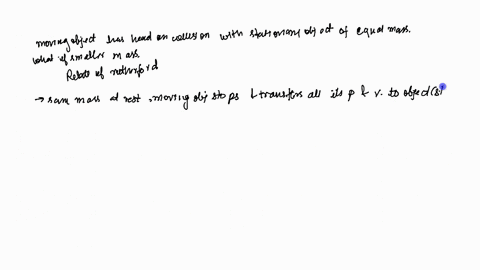 moving object has head on collision with stationary object of equal mass.
what if smaller mass.
Relate of rutherford
→ same mass at rest, moving obj stops & transfers all its p & v. to object(s)